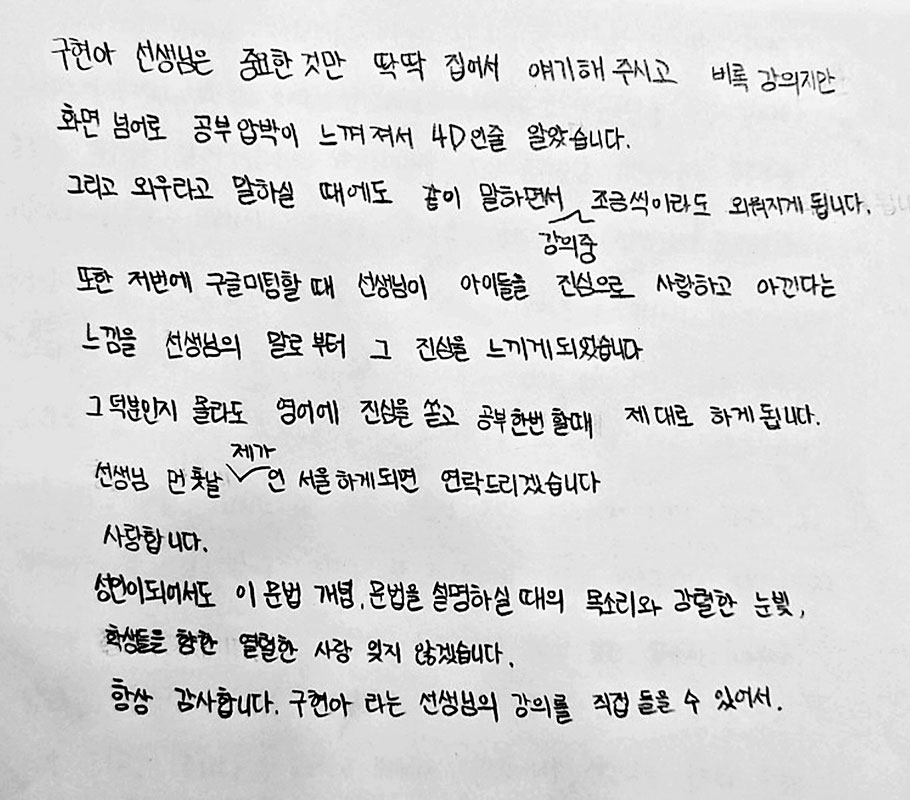 구현아 선생님은 중요한 것만 딱딱 집어서 얘기해 주시고 비록 강의지만
화면 넘어로 공부압박이 느껴져서 4D인줄 알았습니다.
그리고 외우라고 말하실 때에도 같이 말하면서 조금씩이라도 외워지게 됩니다.
강의중
또한 저번에 구글미팅할 때 선생님이 아이들을 진심으로 사랑하고 아낀다는
느낌을 선생님의 말로 부터 그 진심을 느끼게 되었습니다
그 덕분인지 몰라도 영어에 진심을 쏟고 공부한번 할때 제대로 하게 됩니다.
제가
선생님 먼 훗날 인 서울하게되면 연락드리겠습니다
사랑합니다.
성인이되어서도 이 문법 개념, 문법을 설명하실 때의 목소리와 강렬한 눈빛,
학생들을 향한 열렬한 사랑 잊지 않겠습니다.
항상 감사합니다. 구현아 라는 선생님의 강의를 직접 들을 수 있어서.